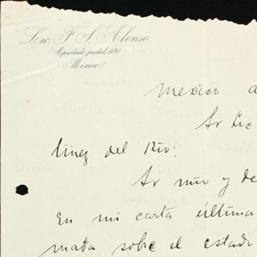 Lic. F. S. Alonso
Apartado postal
México
Mexico a
Sr Lic
tinez del Río:
Sr mio y de
En mi carta última
maba sobre el estado